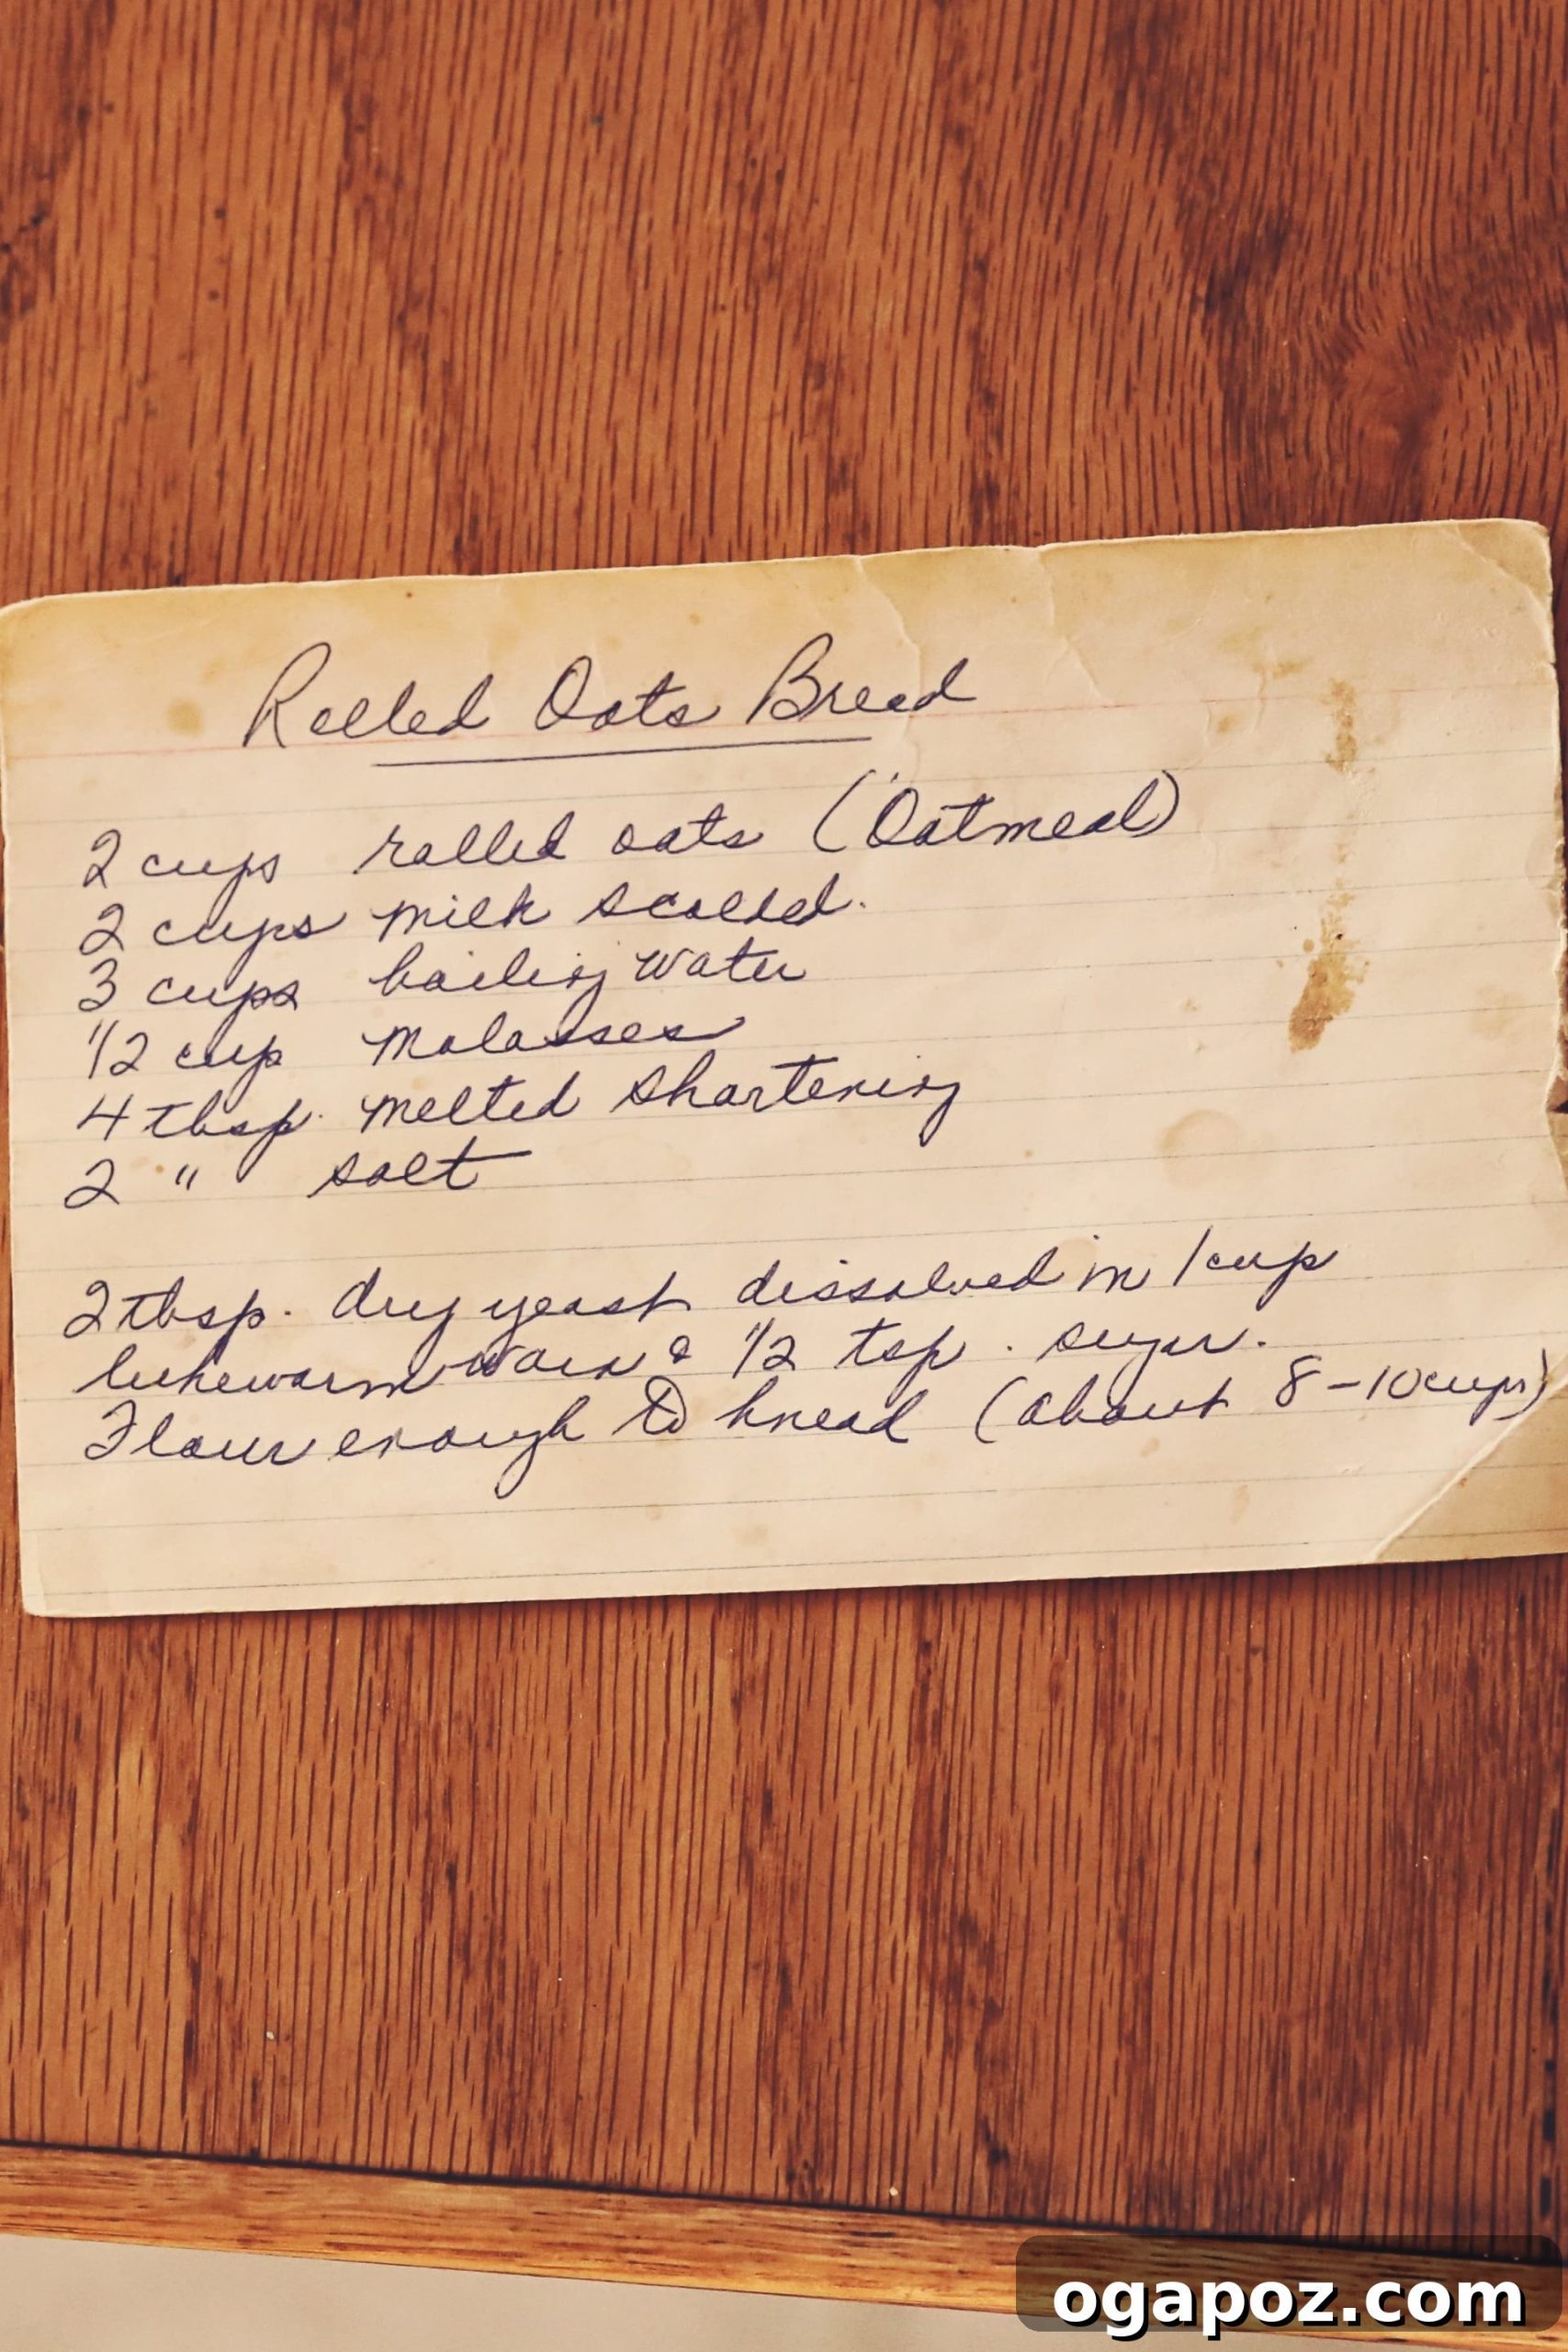 Rolled Oats Bread
2 cups rolled oats (Oatmeal)
2 cups milk scalded.
3 cups boiling water
1/2 cup molasses
4 tbsp. melted shortening
2 " salt
2 tbsp. dry yeast dissolved in 1 cup
lukewarm & 1/2 tsp. sugar.
Flour enough to knead (about 8-10 cups)
ogapoz.com